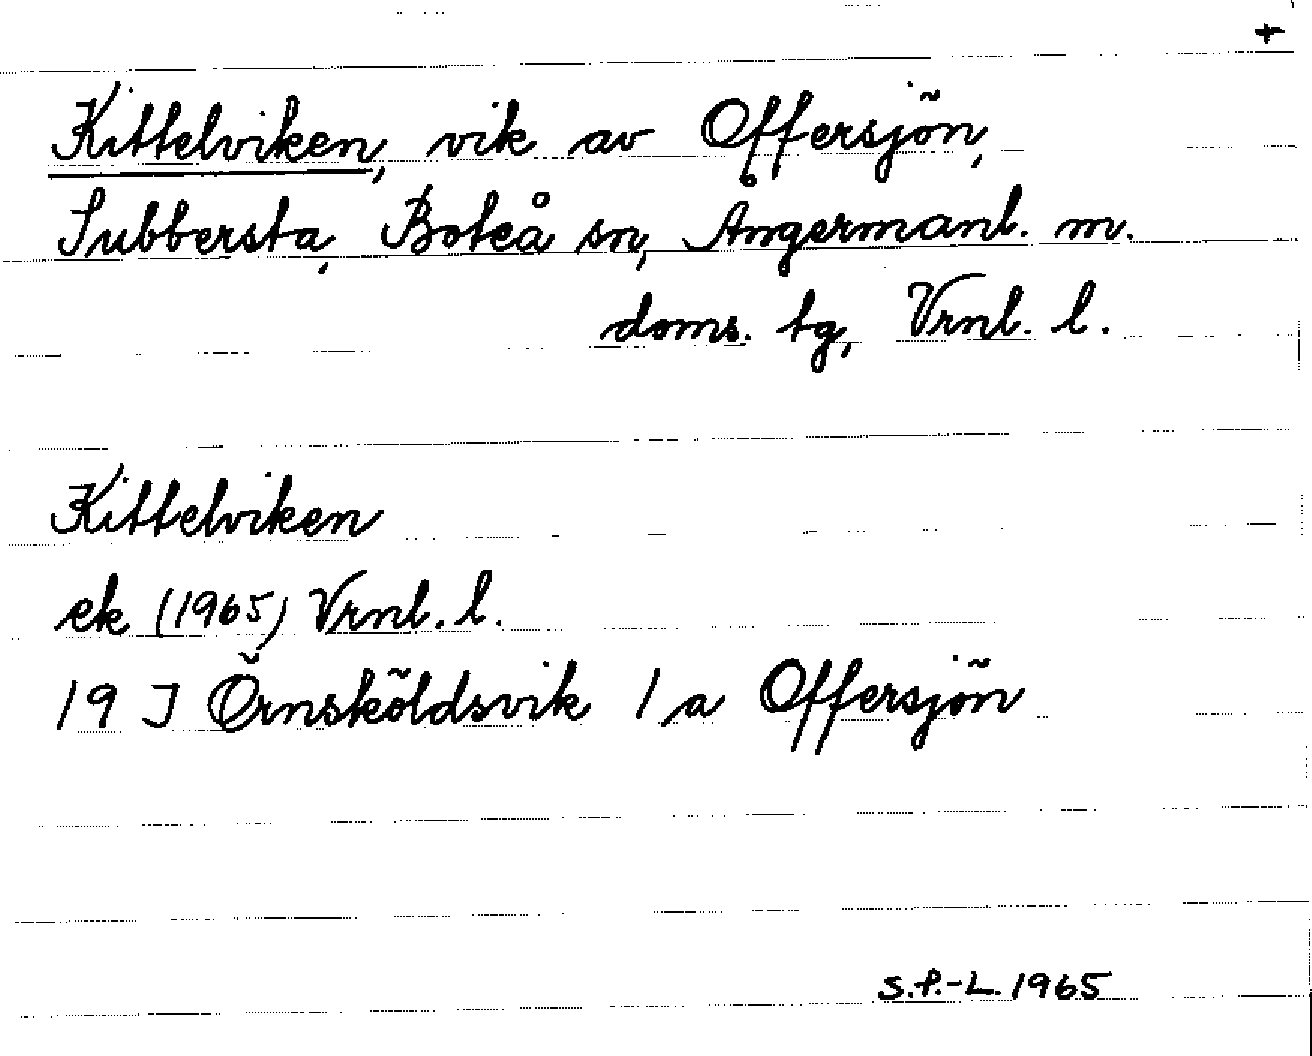 +
Kittelviken, vik av Offersjön,
Subbersta, Boteå sn, Ångermanl. m.
doms. tg, Vrnl. l.
Kittelviken
ek (1965) Vrnl. l.
19 J Örnsköldsvik 1 a Offersjön
S.P.-L. 1965